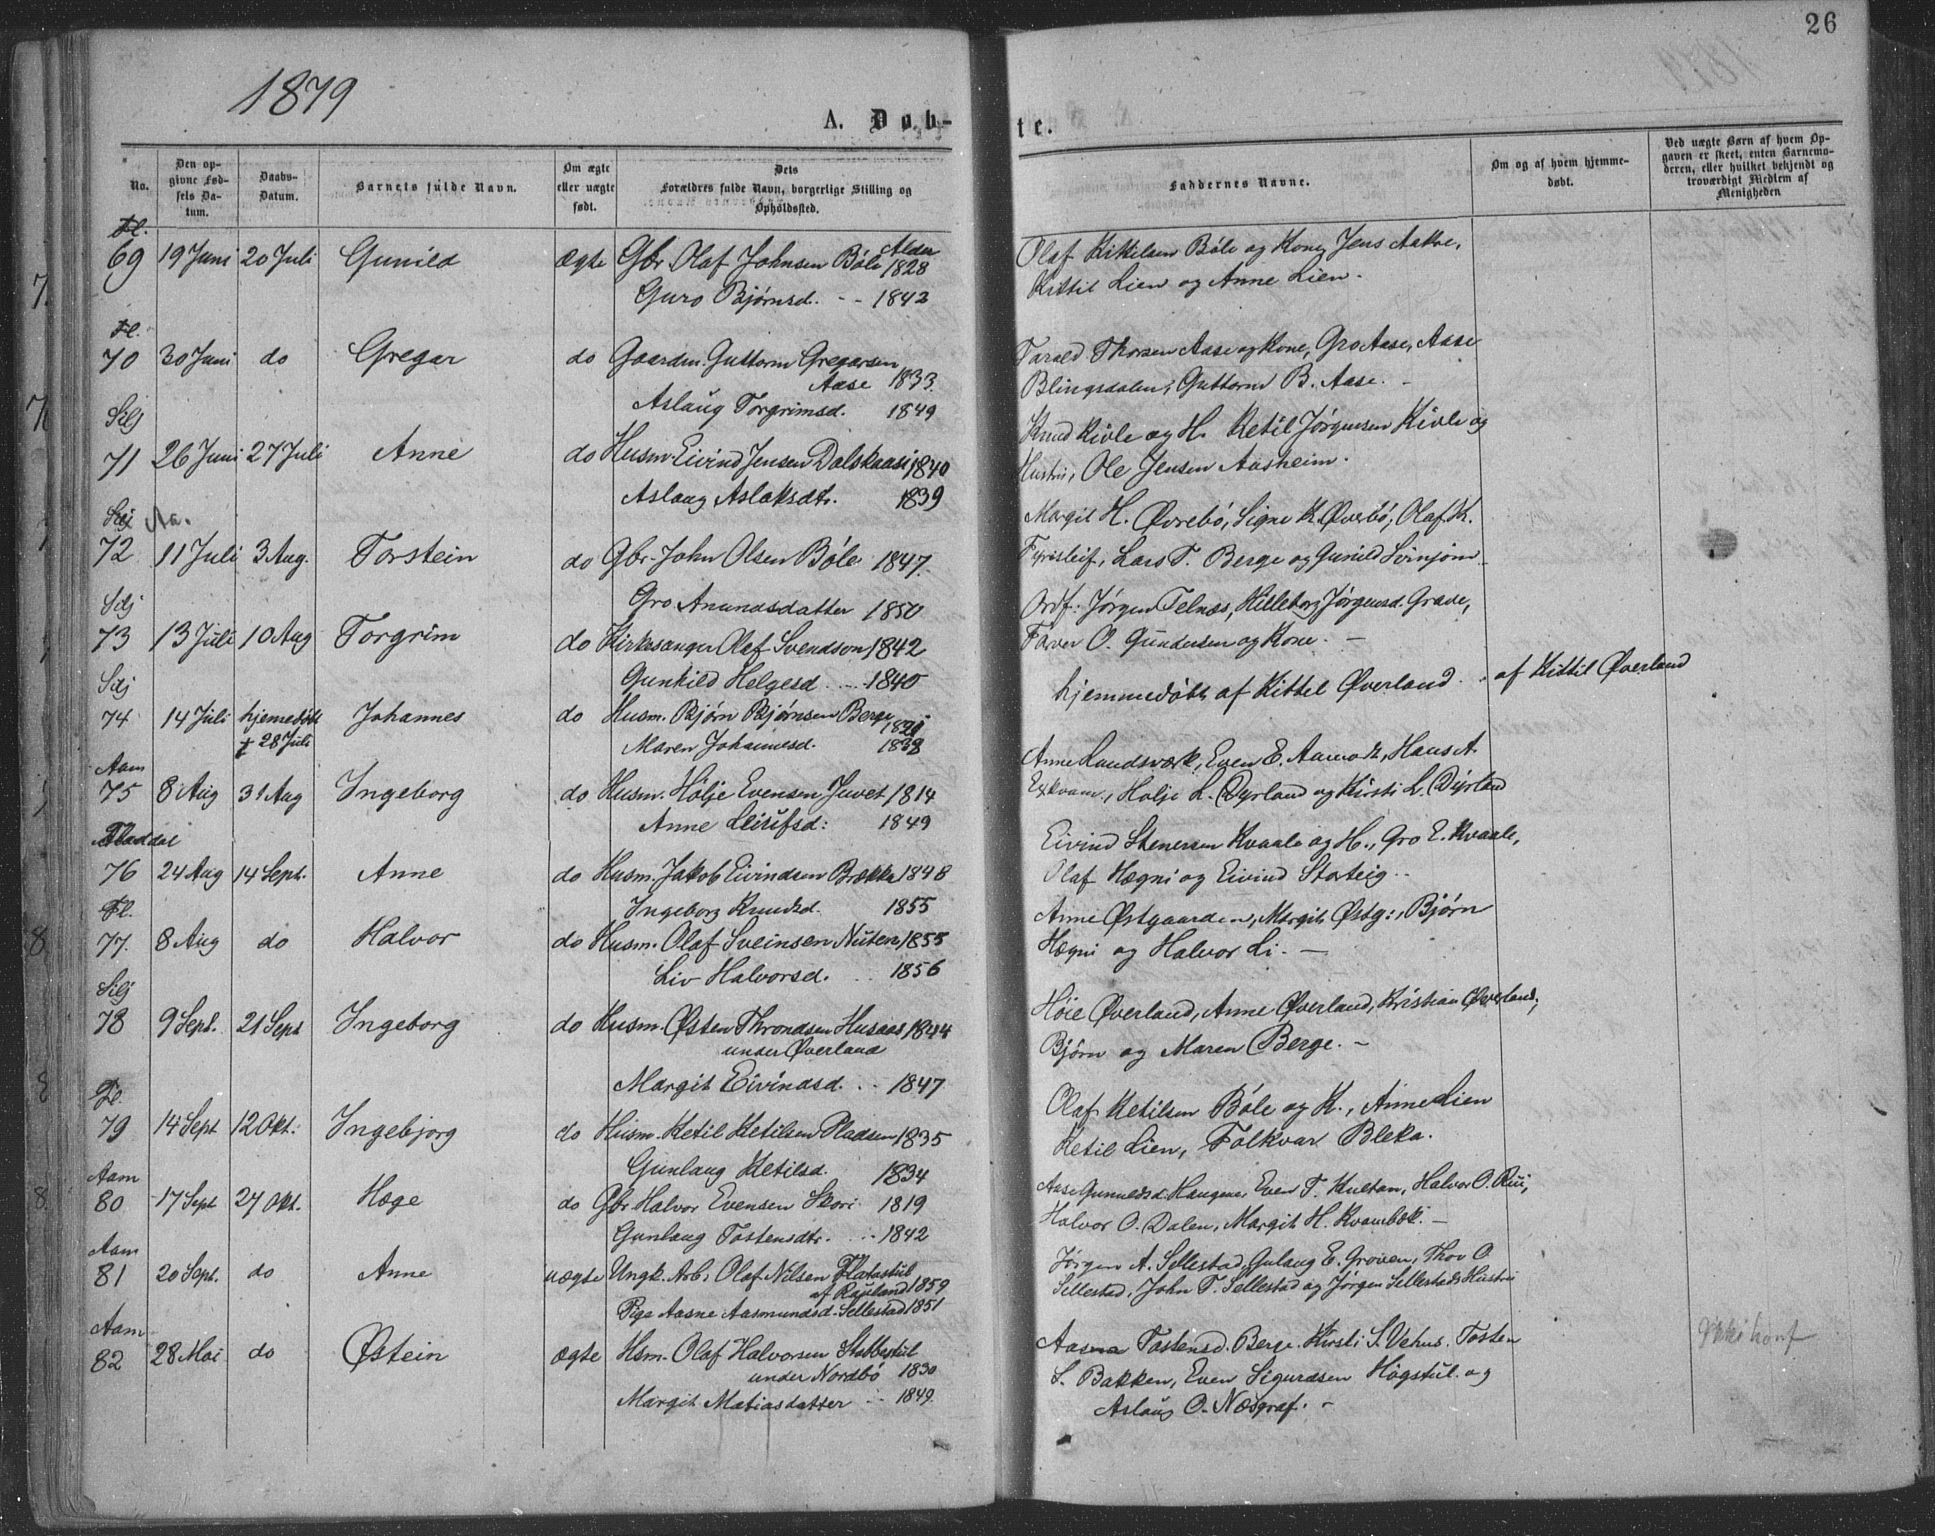 26
1879
A. Døb-
te.
No.
Den opgivne Fødsels Datum.
Daabs-Datum.
Barnets fulde Navn.
Om ægte eller uægte født.
Dets Forældres fulde Navn, borgerlige Stilling og Opholdssted.
Faddernes Navne.
Om og af hvem hjemmedøbt.
Ved uægte Børn af hvem Opgaven er skeet, enten Barnemoderen, eller hvilket bekjendt og troværdigt Medlem af Menigheden
Fl.
69 19 Juni 20 Juli Gunild ægte Gbr. Olaf Johnsen Bøle Alder 1828
Guro Bjørnsd. - - 1842
Olaf Kittilsen Bøle og Kone, Jens Aakre,
Kittil Lien og Anne Lien.
Fl.
70 30 Juni do Gregar do Gaardm. Guttorm Gregarsen
Aase 1833
Aslaug Torgrimsd. 1849
Tarald Thorsen Aase og Kone, Gro Aase, Aase
Blingsdalen, Guttorm B. Aase. -
Slj
71 26 Juni 27 Juli Anne do Husm. Eivind Jensen Dalskaasi 1840
Aslaug Aslaksdtr. 1839
Knud Kivle og H. Ketil Jørgensen Kivle og
Hustru, Ole Jensen Aasheim.
Slj Aa.
72 11 Juli 3 Aug. Torstein do Gbr. John Olsen Bøle 1847.
Gro Anundsdatter 1850
Margit H. Øvrebø, Signe K. Øverbø, Olaf K.
Fyrisleif, Lars T. Berge og Gunild Svinjom
Sdj
73 13 Juli 10 Aug Torgrim do Kirkesanger Olaf Svendson 1842
Gunhild Helgesd. 1840
Ordf: Jørgen Telnæs, Killeborg Jørgensd. Grave,
Farver O. Gundersen og Kone. -
Sdj
74 14 Juli hjemedøbt Johannes do Husm. Bjørn Bjørnsen Berge
‡ 28 Juli
Maren Johannesd. 1838
hjemmedøbt af Kittel Øverland. af Kittil Øverland
Aam
75 8 Aug 31 Aug Ingeborg do Husm. Hølje Evensen Juvet 1814
Anne Leiufsd: 1849
Anne Landsværk, Even E. Aamodt, Hans A.
Exkvam, Holje L. Dyrland og Kirsti L. Dyrland
Fladdal
76 24 Aug 14 Sept. Anne do Husm. Jakob Eivindsen Brække 1848
Ingeborg Knudsd. 1855
Eivind Stenersen Kvaale og H., Gro E. Kvaale,
Olaf Hægni og Eivind Storteig.
Fl.
77. 8 Aug do Halvor do Husm. Olaf Sveinsen Nuten 1855
Liv Halvorsd. 1856
Anne Østgaarden, Margit Østg:, Bjørn
Hægni og Halvor Li. -
Silj
78 9 Sept. 21 Sept Ingeborg do Husm. Østen Throndsen Husaas 1844
under Øverland
Margit Eivindsd. 1847
Høie Øverland, Anne Øverland, Kristian Øverland,
Bjørn og Maren Berge. -
Fl.
79 14 Sept 12 Okt. Ingebjorg do Husm. Ketil Ketilsen Pladsen 1835
Gunlaug Ketilsd. 1834
Olaf Ketilsen Bøle og K., Anne Lien
Ketil Lien, Folkvar Bleka.
Aam
80 17 Sept 27 Okt. Hæge do Gbr Halvor Evensen Skori 1819
Gunlaug Tostensdtr. 1842
Aase Gunuldsd. Haugene, Even T. Kultan, Halvor O. Rui,
Halvor O. Dalen, Margit H. Kvambæk. -
Aam
81 20 Sept. do Anne uægte Ungk. Arb. Olaf Nilsen Flatastul
af Rauland 1859
Pige Aasne Aasmundsd. Sellestad 1851
Jørgen A. Sellestad, Gulaug E. Groven, Thov O.
Sillestad, John T. Sellestad og Jørgen Sellestads Hustru
Aam
82 28 Mai do Østein ægte Hsm. Olaf Halvorsen Stabbestul
under Nordbø 1830
Margit Matiasdatter 1849
Aasne Tostensd. Berge. Kirsti S. Vehus. Tosten
S. Bakken, Even Sigurdsen Høgstul og
Aslaug O. Næsgraf. -
Ikke konf